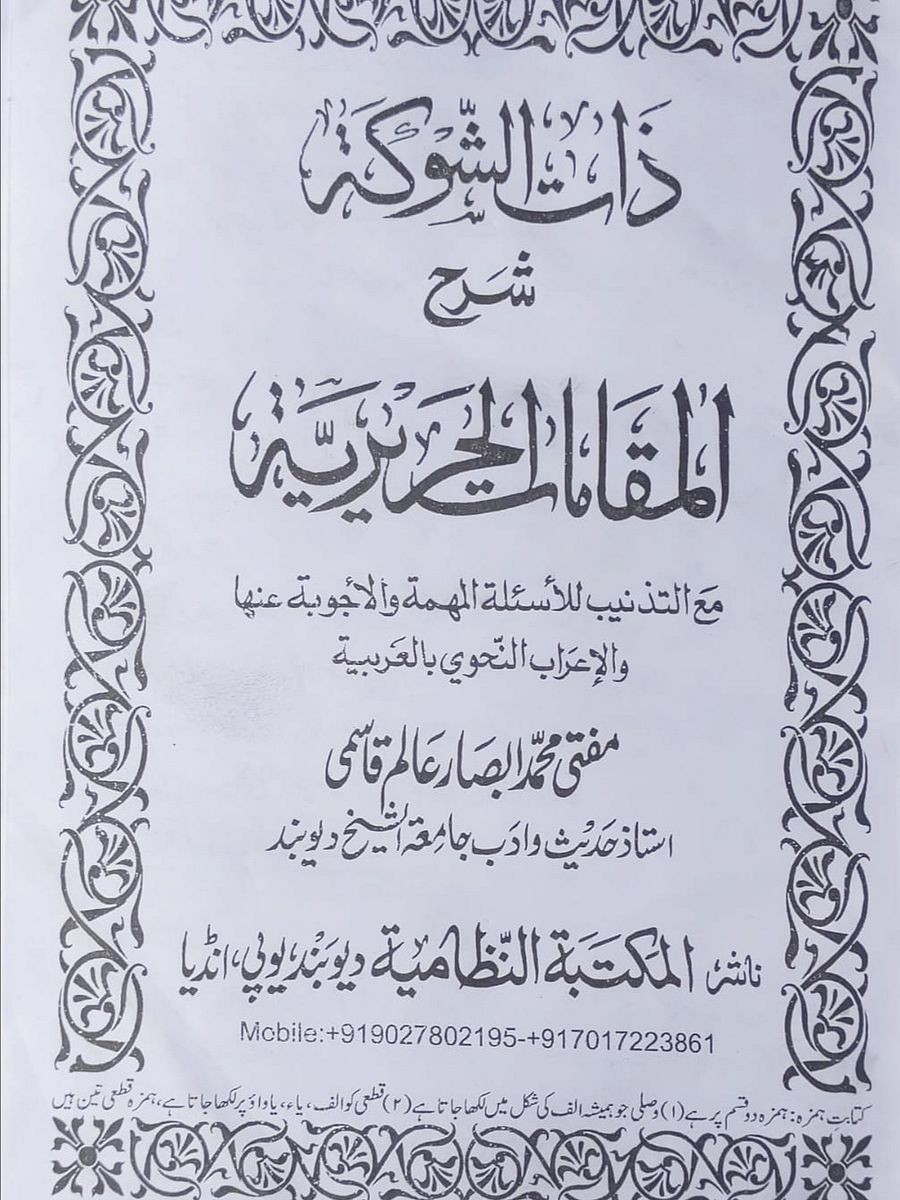 ذَاتُ الشَّوْكَةِ
شَرح
المَقَامَاتِ الْحَرِيْرِيَّةِ
مَع التذنيب للأسئلة المهمة والأجوبة عنها
والإعرَاب النَّحوي بالعَربية
مفتی محمّد ابصَار عَالم قاسمی
استاذ حَدیث وادَب جامِعۃ الشیخ دیوبند
ناشر المَكتَبَة النِّظامية دیوبَند، یوپی، انڈیا
Mobile:+919027802195-+917017223861
کتابت ہمزہ: ہمزہ دو قسم پر ہے (۱) وصلی جو ہمیشہ الف کی شکل میں لکھا جاتا ہے (۲) قطعی کو الف، یاء، یا واؤ پر لکھا جاتا ہے، ہمزہ قطعی تین ہیں